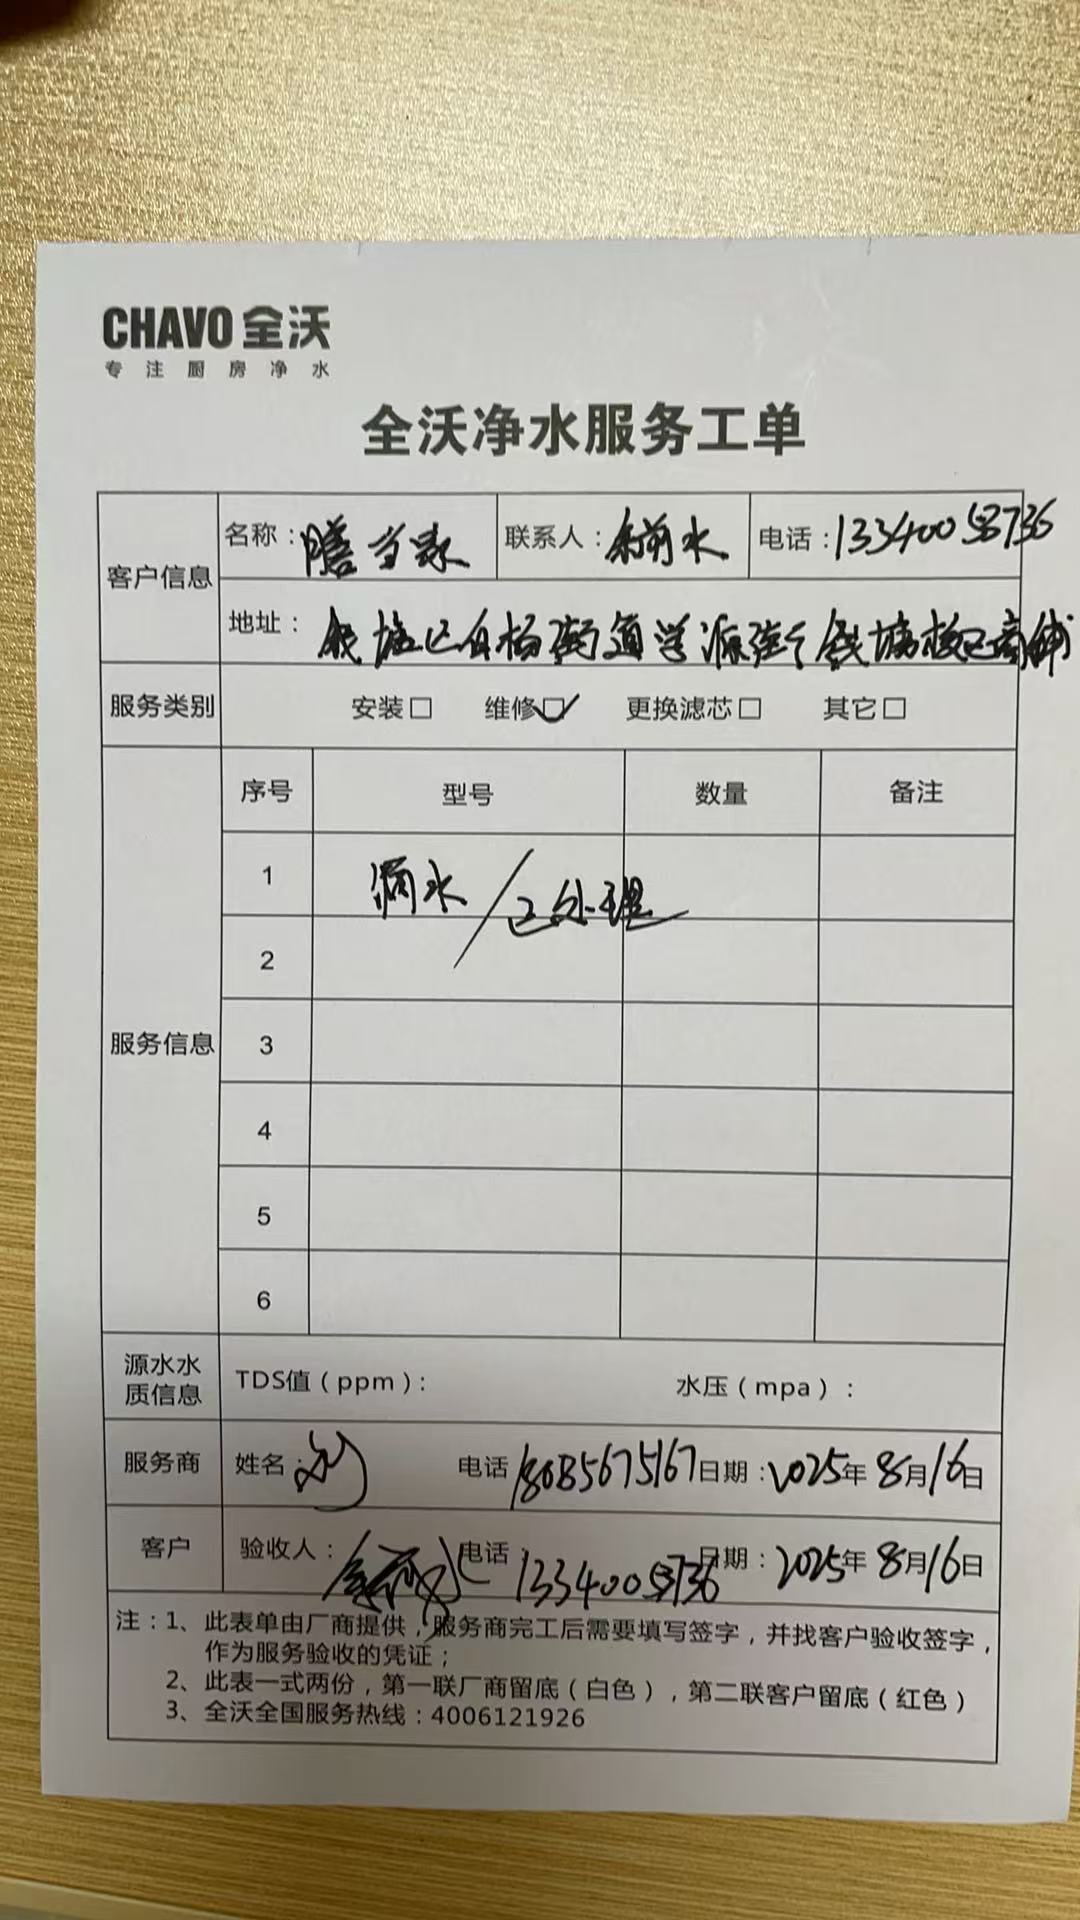 CHAVO 全沃
专注厨房净水
全沃净水服务工单
客户信息
名称：膳当家 联系人： 水 电话：13340053736
地址：钱塘区白杨街道学源街钱塘校区商铺
服务类别 安装□ 维修☑ 更换滤芯□ 其它□
服务信息
序号 型号 数量 备注
1 漏水/已处理
2
3
4
5
6
源水水质信息 TDS值（ppm）： 水压（mpa）：
服务商 姓名：刘 电话 18085675167 日期：2025年8月16日
客户 验收人： 电话：13340053736 日期：2025年8月16日
注：1、此表单由厂商提供，服务商完工后需要填写签字，并找客户验收签字，
作为服务验收的凭证；
2、此表一式两份，第一联厂商留底（白色），第二联客户留底（红色）
3、全沃全国服务热线：4006121926